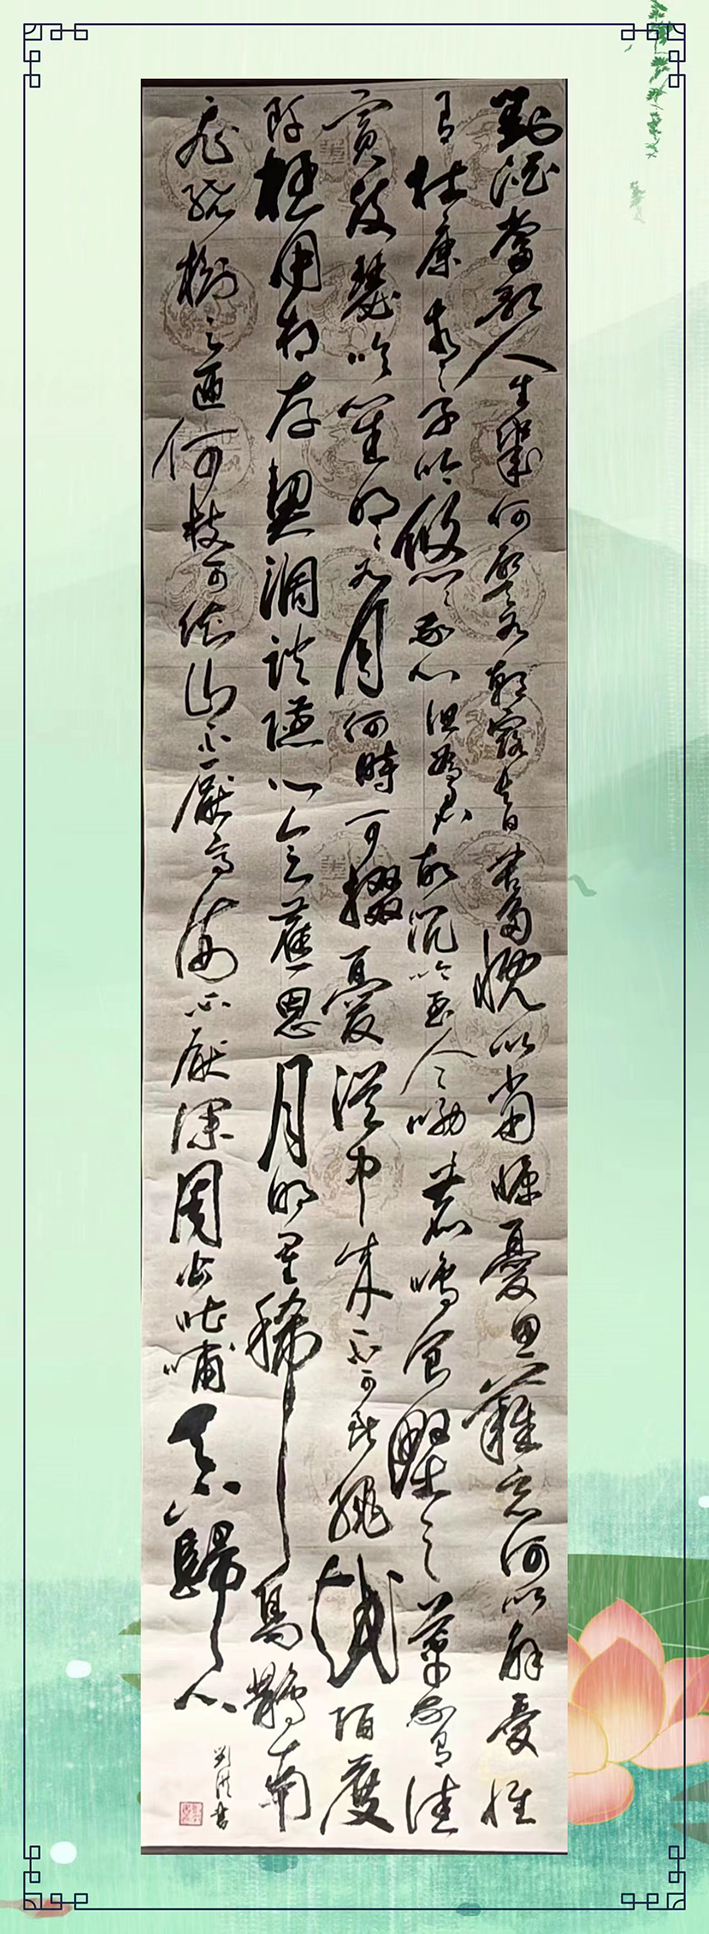 對酒當歌人生幾何譬如朝露去日苦多慨以當慷憂思難忘何以解憂惟
有杜康青青子衿悠悠我心但為君故沉吟至今呦呦鹿鳴食野之苹我有佳
賓鼓瑟吹笙明明如月何時可掇憂從中來不可斷絕越陌度
阡枉用相存契闊談讌心念舊恩月明星稀烏鵲南
飛繞樹三匝何枝可依山不厭高海不厭深周公吐哺天下歸心